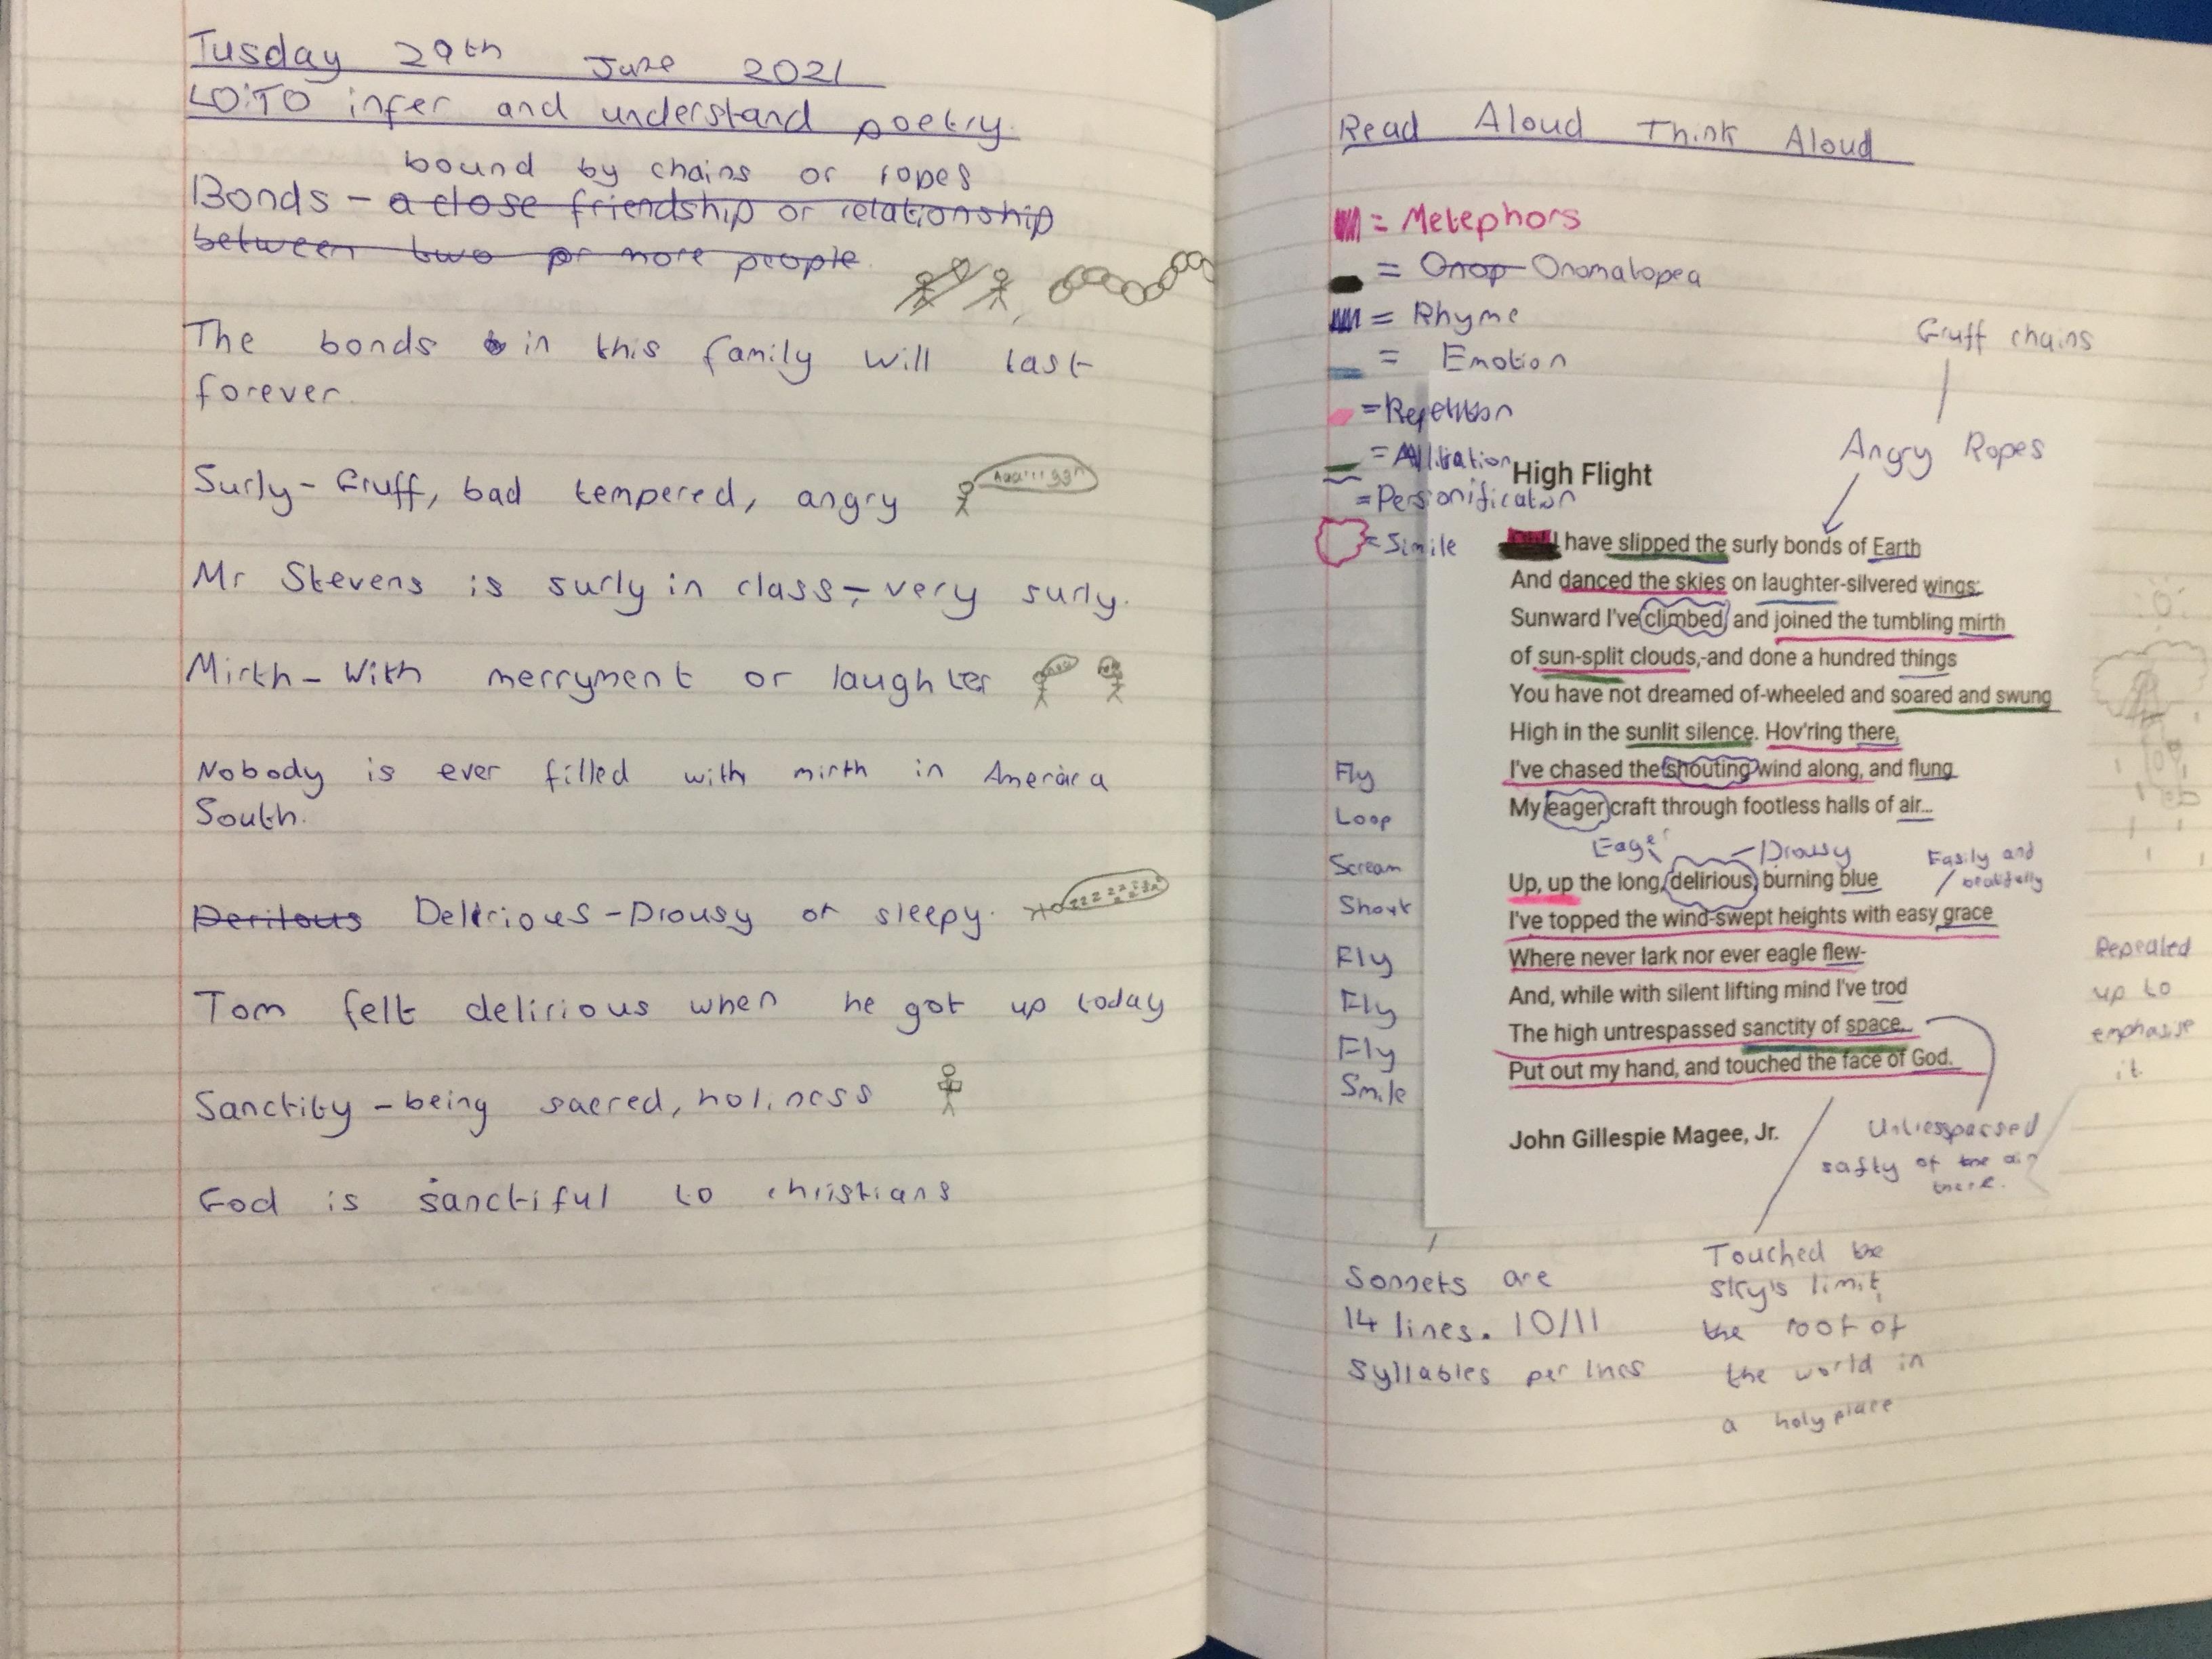 Tusday 29th June 2021
LO:TO infer and understand poetry.
bound by chains or ropes
Bonds - a close friendship or relationship
between two or more people.
The bonds in this family will last
forever.
Surly - Gruff, bad tempered, angry
Mr Stevens is surly in class, - very surly.
Mirth - With merryment or laughter
Nobody is ever filled with mirth in America
South.
Perilous Delirious - Drousy or sleepy.
zzzzzzzz
Tom felt delirious when he got up today
Sanctity - being sacred, holiness
God is sanctiful to christians
Read Aloud Think Aloud
= Metephors
= Onop Onomatopea
= Rhyme
= Emotion
= Repetition
= Allitration
= Personification
= Simile
Gruff chains
Angry Ropes
High Flight
I have slipped the surly bonds of Earth
And danced the skies on laughter-silvered wings;
Sunward I've climbed, and joined the tumbling mirth
of sun-split clouds,-and done a hundred things
You have not dreamed of-wheeled and soared and swung
High in the sunlit silence. Hov'ring there,
I've chased the shouting wind along, and flung
My eager craft through footless halls of air...
Eager
Drousy
Easily and
beatifully
Up, up the long, delirious, burning blue
I've topped the wind-swept heights with easy grace
Where never lark nor ever eagle flew-
And, while with silent lifting mind I've trod
The high untrespassed sanctity of space,
Put out my hand, and touched the face of God.
John Gillespie Magee, Jr.
Fly
Loop
Scream
Shout
Fly
Fly
Fly
Smile
Repeated
up to
emphasise
it.
Untresspassed
safty of the air
there.
Sonnets are
14 lines. 10/11
syllables per lines
Touched the
sky's limit,
the roof of
the world in
a holy place